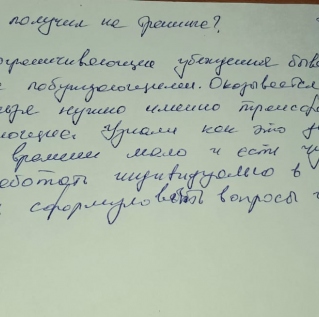 получил на тренинге?
ограничивающие убеждения быва
и побуждающими. Оказывается
нужно именно трансфор
Узнали как это д
времени мало и есть
работать индивидуально в
сформулировать вопросы